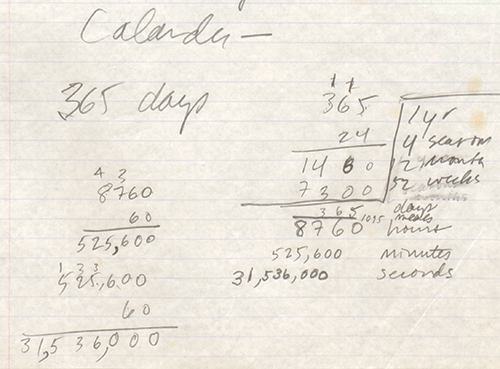 Calander —
365 days
1 1
365
24
1460
7300
8760
4 3
8760
60
525,600
1 3 3
525,600
60
31,536,000
1 yr
4 seasons
12 months
52 weeks
365 days
1095 meals
8760 hours
525,600 minutes
31,536,000 seconds